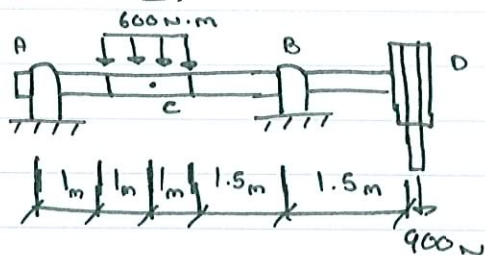 600N·m
A
B
D
C
1m 1m 1m 1.5m 1.5m
900N